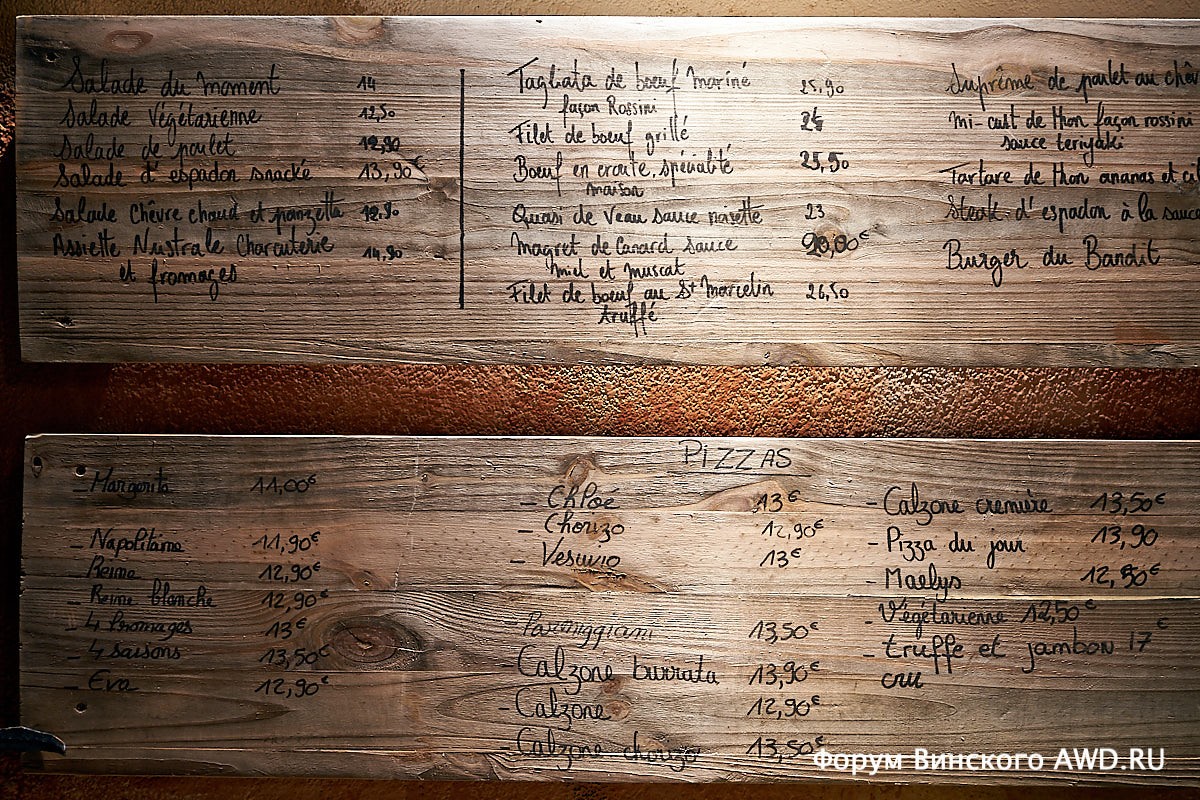 Salade du moment 14
Salade Végétarienne 12,50
Salade de poulet 12,90
Salade d'espadon snacké 13,90€
Salade chèvre chaud et panzetta 12.90
Assiette Nustrale Charcuterie 14,90
et fromages
Tagliata de boeuf mariné 25,90
façon Rossini
Filet de boeuf grillé 24
Boeuf en croute, spécialité 25,50
maison
Quasi de Veau sauce noisette 23
Magret de Canard sauce €
miel et muscat
Filet de boeuf au St Marcelin 26,50
truffé
Suprême de poulet au chèv
Mi-cuit de thon façon rossini
sauce teriyaki
Tartare de thon ananas et ci
Steak d'espadon à la sauce
Burger du Bandit
PIZZAS
- Margerita 11,00€
- Napolitaine 11,90€
- Reine 12,90€
- Reine blanche 12,90€
- 4 fromages 13€
- 4 saisons 13,50€
- Eva 12,90€
- Chloé 13€
- Chorizo 12,90€
- Vesuvio 13€
- Parmiggiani 13,50€
- Calzone burrata 13,90€
- Calzone 12,90€
- Calzone chorizo 13,50€
- Calzone cremière 13,50€
- Pizza du jour 13,90
- Maelys 12,90€
- Végétarienne 12,50€
- truffe et jambon 17€
cru
Форум Винского AWD.RU